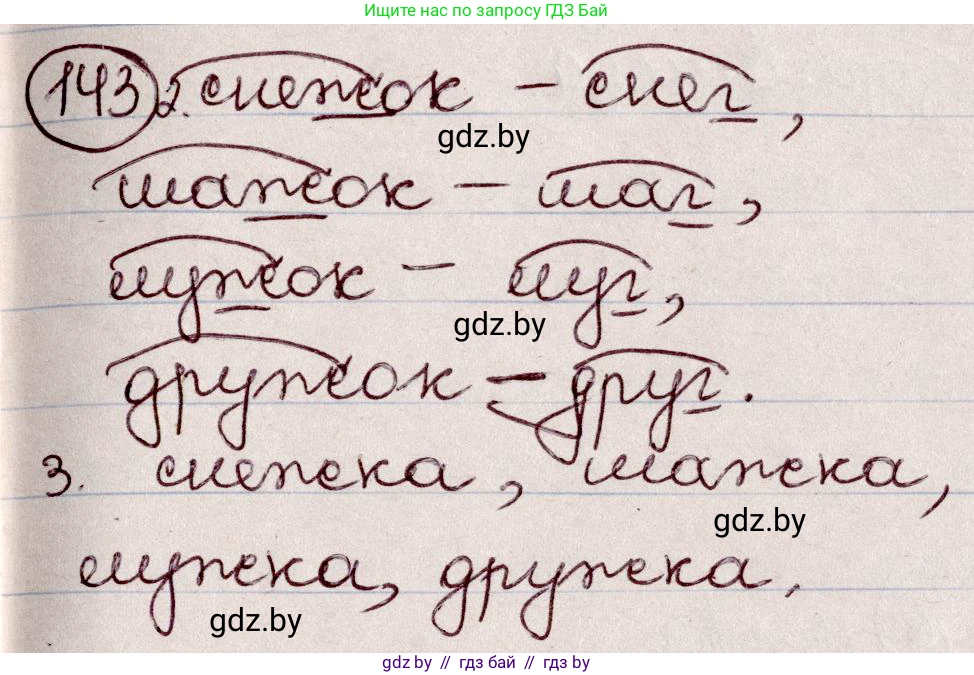 Ищите нас по запросу ГДЗ Бай
143 2. снежок – снег,
gdz.by
шажок – шаг,
лужок – луг,
gdz.by
дружок – друг.
3. снежка, шажка,
gdz.by
лужка, дружка.
gdz.by
gdz by // гдз бай // гдз by